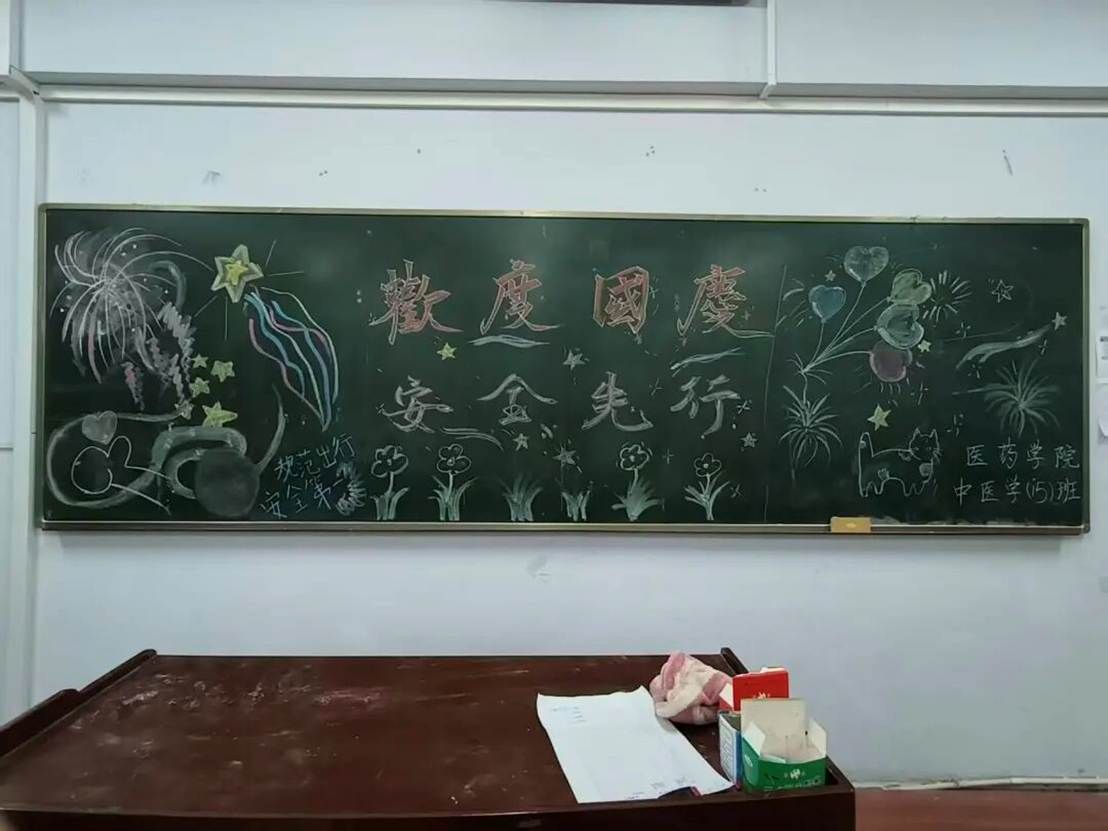 歡度國慶
安全先行
规范出行
安全第一
医药学院
中医学(15)班